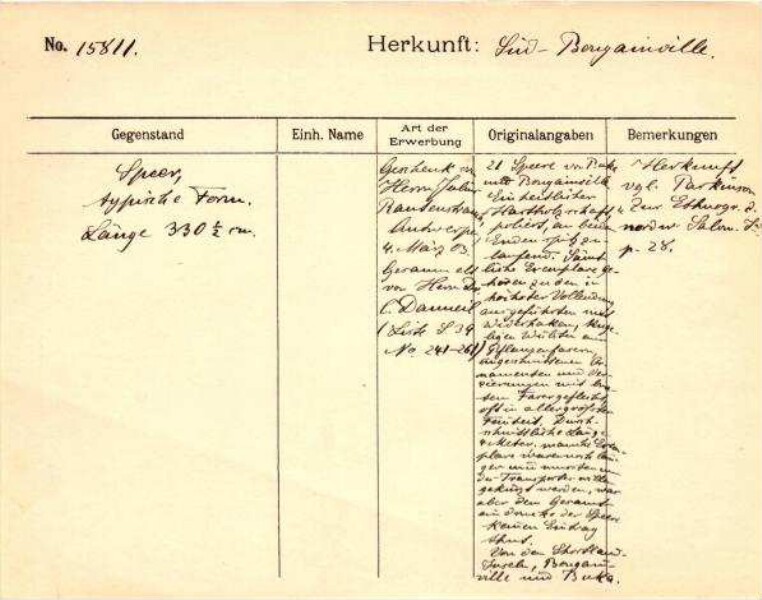 No. 15811.
Herkunft: Süd-Bougainville.
Gegenstand
Einh. Name
Art der Erwerbung
Originalangaben
Bemerkungen
Speer,
typische Form.
Länge 330 ½ cm.
Geschenk von
Herrn Julius
Rautenstrauch,
Antwerpen
4. März 03.
Gesammelt
von Herrn Dr.
C. Danneil
(Liste S 39
No. 241-261)
21 Speere von Buka
und Bougainville
Einheitlicher
Hartholzschaft,
poliert, an beiden
Enden spitz zu-
laufend. Sämt-
liche Exemplare ge-
hören zu den in
höchster Vollendung
ausgeführten mit
Widerhaken, kuge-
ligen Wülsten aus
Pflanzenfasern,
eingeschnittenen Or-
namenten und Ver-
zierungen mit
Fasergeflecht,
oft in allergrößter
Feinheit. Durch-
schnittliche Länge
4 Meter. manche Exem-
plare waren noch län-
ger und mussten um
des Transportes willen
gekürzt werden, was
aber dem Gesamt-
eindrucke der Speere
keinen Eintrag
thut.
Von den Shortland-
Inseln, Bougain-
ville und Buka.
Herkunft
vgl. Parkinson
"Zur Ethnogr. d.
nordw. Salom. I."
p. 28.